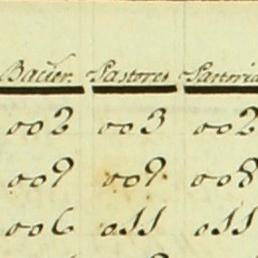 Bacier. Pastores Partoria
002 003 002
009 009 008
006 011 011